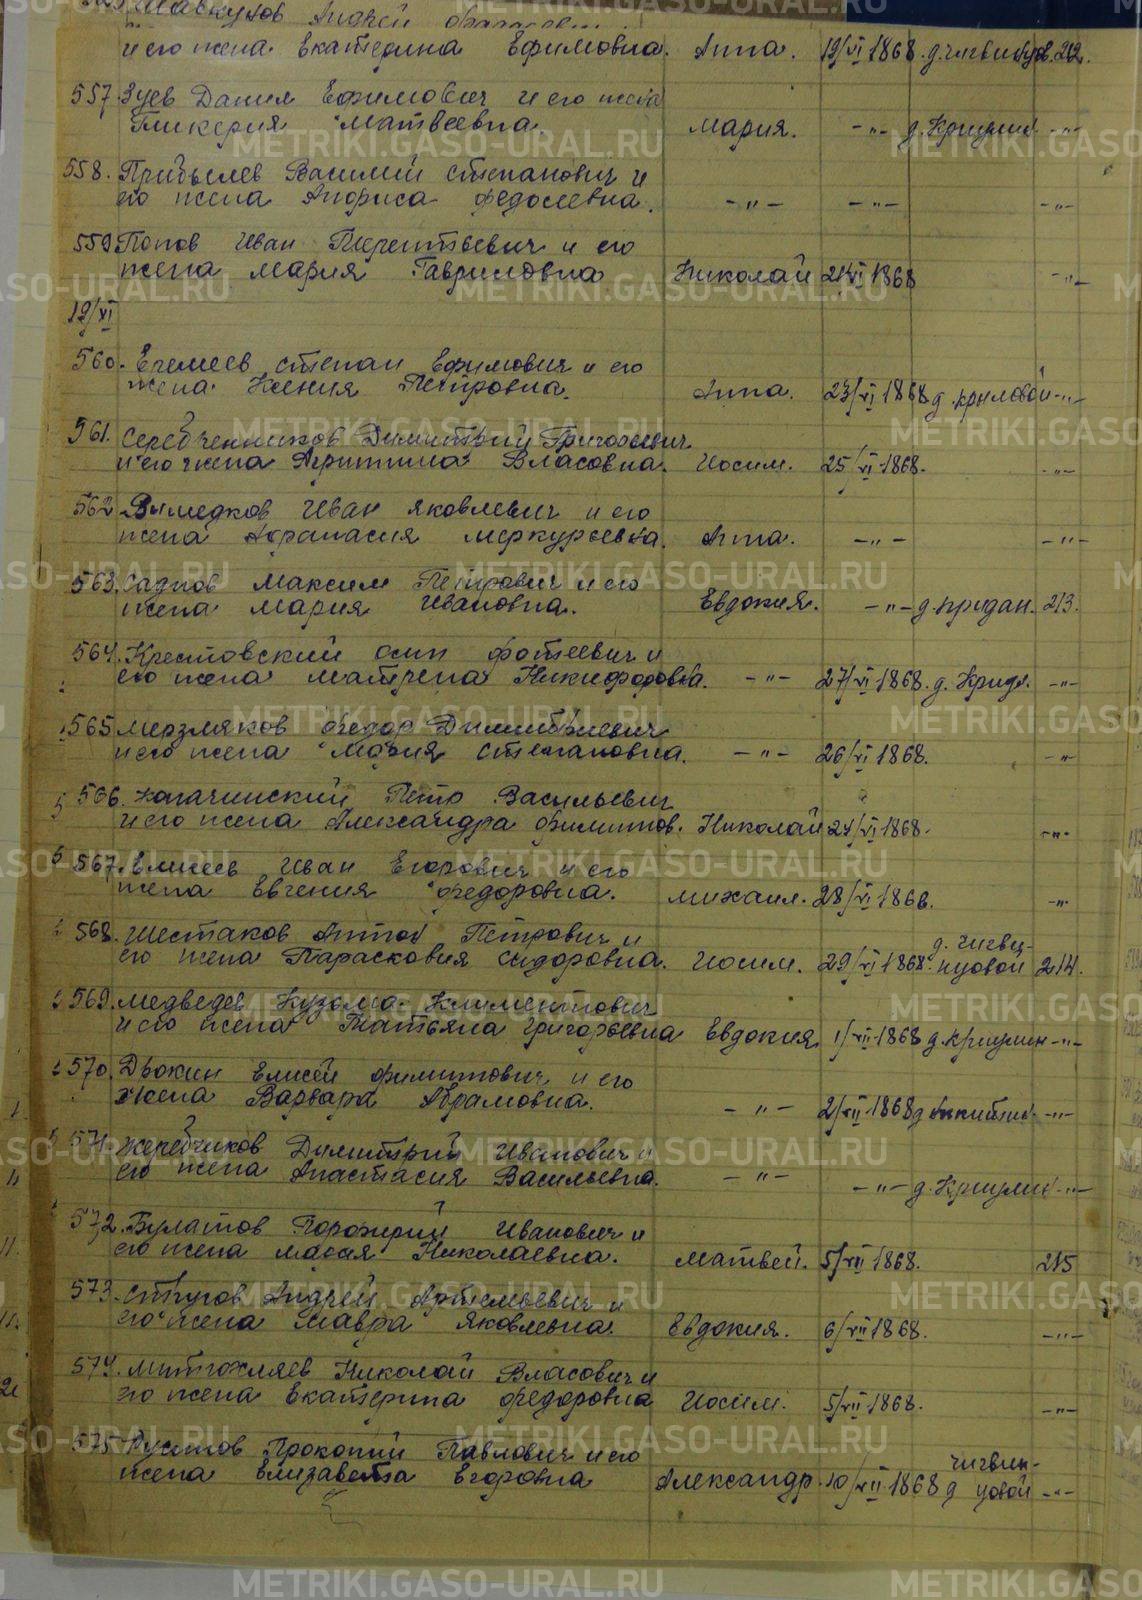 Андрей
и его жена Екатерина Ефимовна. Анна. 19/VI 1868. 212.
557. Зуев Данил Ефимович и его жена
Гликерия Матвеевна. Мария. -"- д. -"-
558. Прибылев Василий Степанович и
его жена Федосеевна. -"- -"- -"-
559 Попов Иван Терентьевич и его
жена Мария Гавриловна Николай 21/VI 1868 -"-
19/VI
560. Еремеев Степан Ефимович и его
жена Ксения Петровна. Анна. 23/VI 1868 д. Крыловой -"-
561. Серебренников Димитрий Григорьевич
и его жена Власовна. Иосиф. 25/VI 1868. -"-
562 Иван Яковлевич и его
жена Меркурьевна. Анна. -"- -"-
563. Садков Максим Петрович и его
жена Мария Ивановна. Евдокия. -"- 213.
564. Крестовский Осип Фотеевич и
его жена Матрена Никифоровна. -"- 27/VI 1868. д. -"-
565 Мерзляков Федор Димитриевич
и его жена Мария Степановна. -"- 26/VI 1868. -"-
566. Петр Васильевич
и его жена Александра Филиппов. Николай 27/VI 1868. -"-
567. Елисеев Иван Егорович и его
жена Евгения Федоровна. Михаил. 28/VI 1868. -"-
568. Шестаков Антон Петрович и д. Чигвин-
его жена Парасковия Сидоровна. Иосиф. 29/VI 1868. цовой 214.
569. Медведев Кузьма Климентович
и его жена Татьяна Григорьевна Евдокия 1/VII 1868 д. -"-
570. Двокин Елисей Филиппович и его
жена Варвара Абрамовна. -"- 2/VII 1868 д. -"-
571. Жеребчиков Димитрий Иванович и
его жена Анастасия Васильевна. -"- -"- д. -"-
572. Булатов Порфирий Иванович и
его жена Мария Николаевна. Матвей. 5/VII 1868. 215
573. Стругов Андрей Артемьевич и
его жена Мавра Яковлевна. Евдокия. 6/VII 1868. -"-
574. Николай Власович и
его жена Екатерина Федоровна Иосиф. 5/VII 1868. -"-
575 Прокопий Павлович и его Чигвин-
жена Елизавета Егоровна Александр. 10/VII 1868 д цовой -"-
METRIKI.GASO-URAL.RU